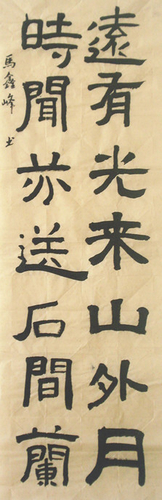 遠有光来山外月
時聞亦送石間蘭
馬鑫峰书